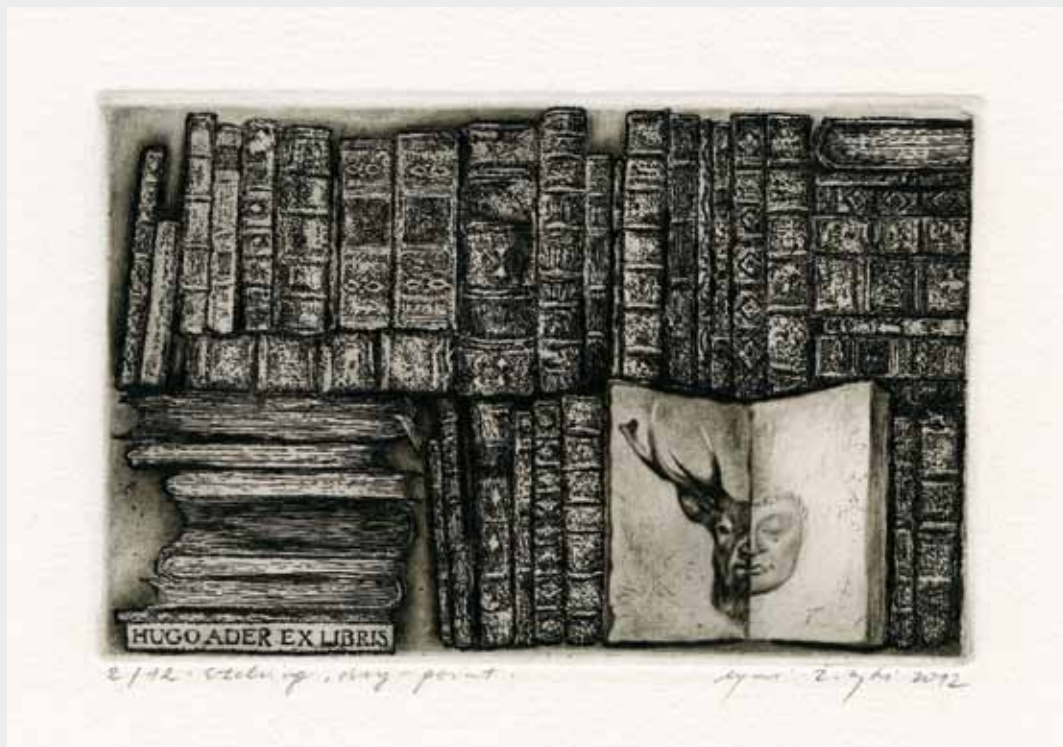 HUGO ADER EX LIBRIS
2/12 etching, dry-point. 2012